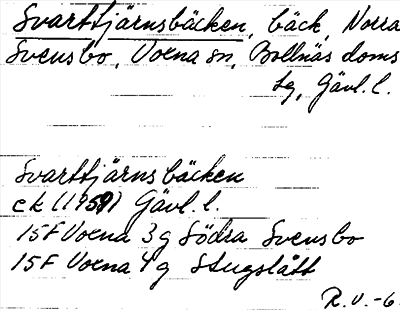 Svarttjärnsbäcken, bäck, Norra
Svensbo, Voxna sn, Bollnäs doms
lg, Gävl. l.
Svarttjärnsbäcken
ek (1959) Gävl. l.
15F Voxna 3g Södra Svensbo
15F Voxna 4g Stugslått
R.V.-6